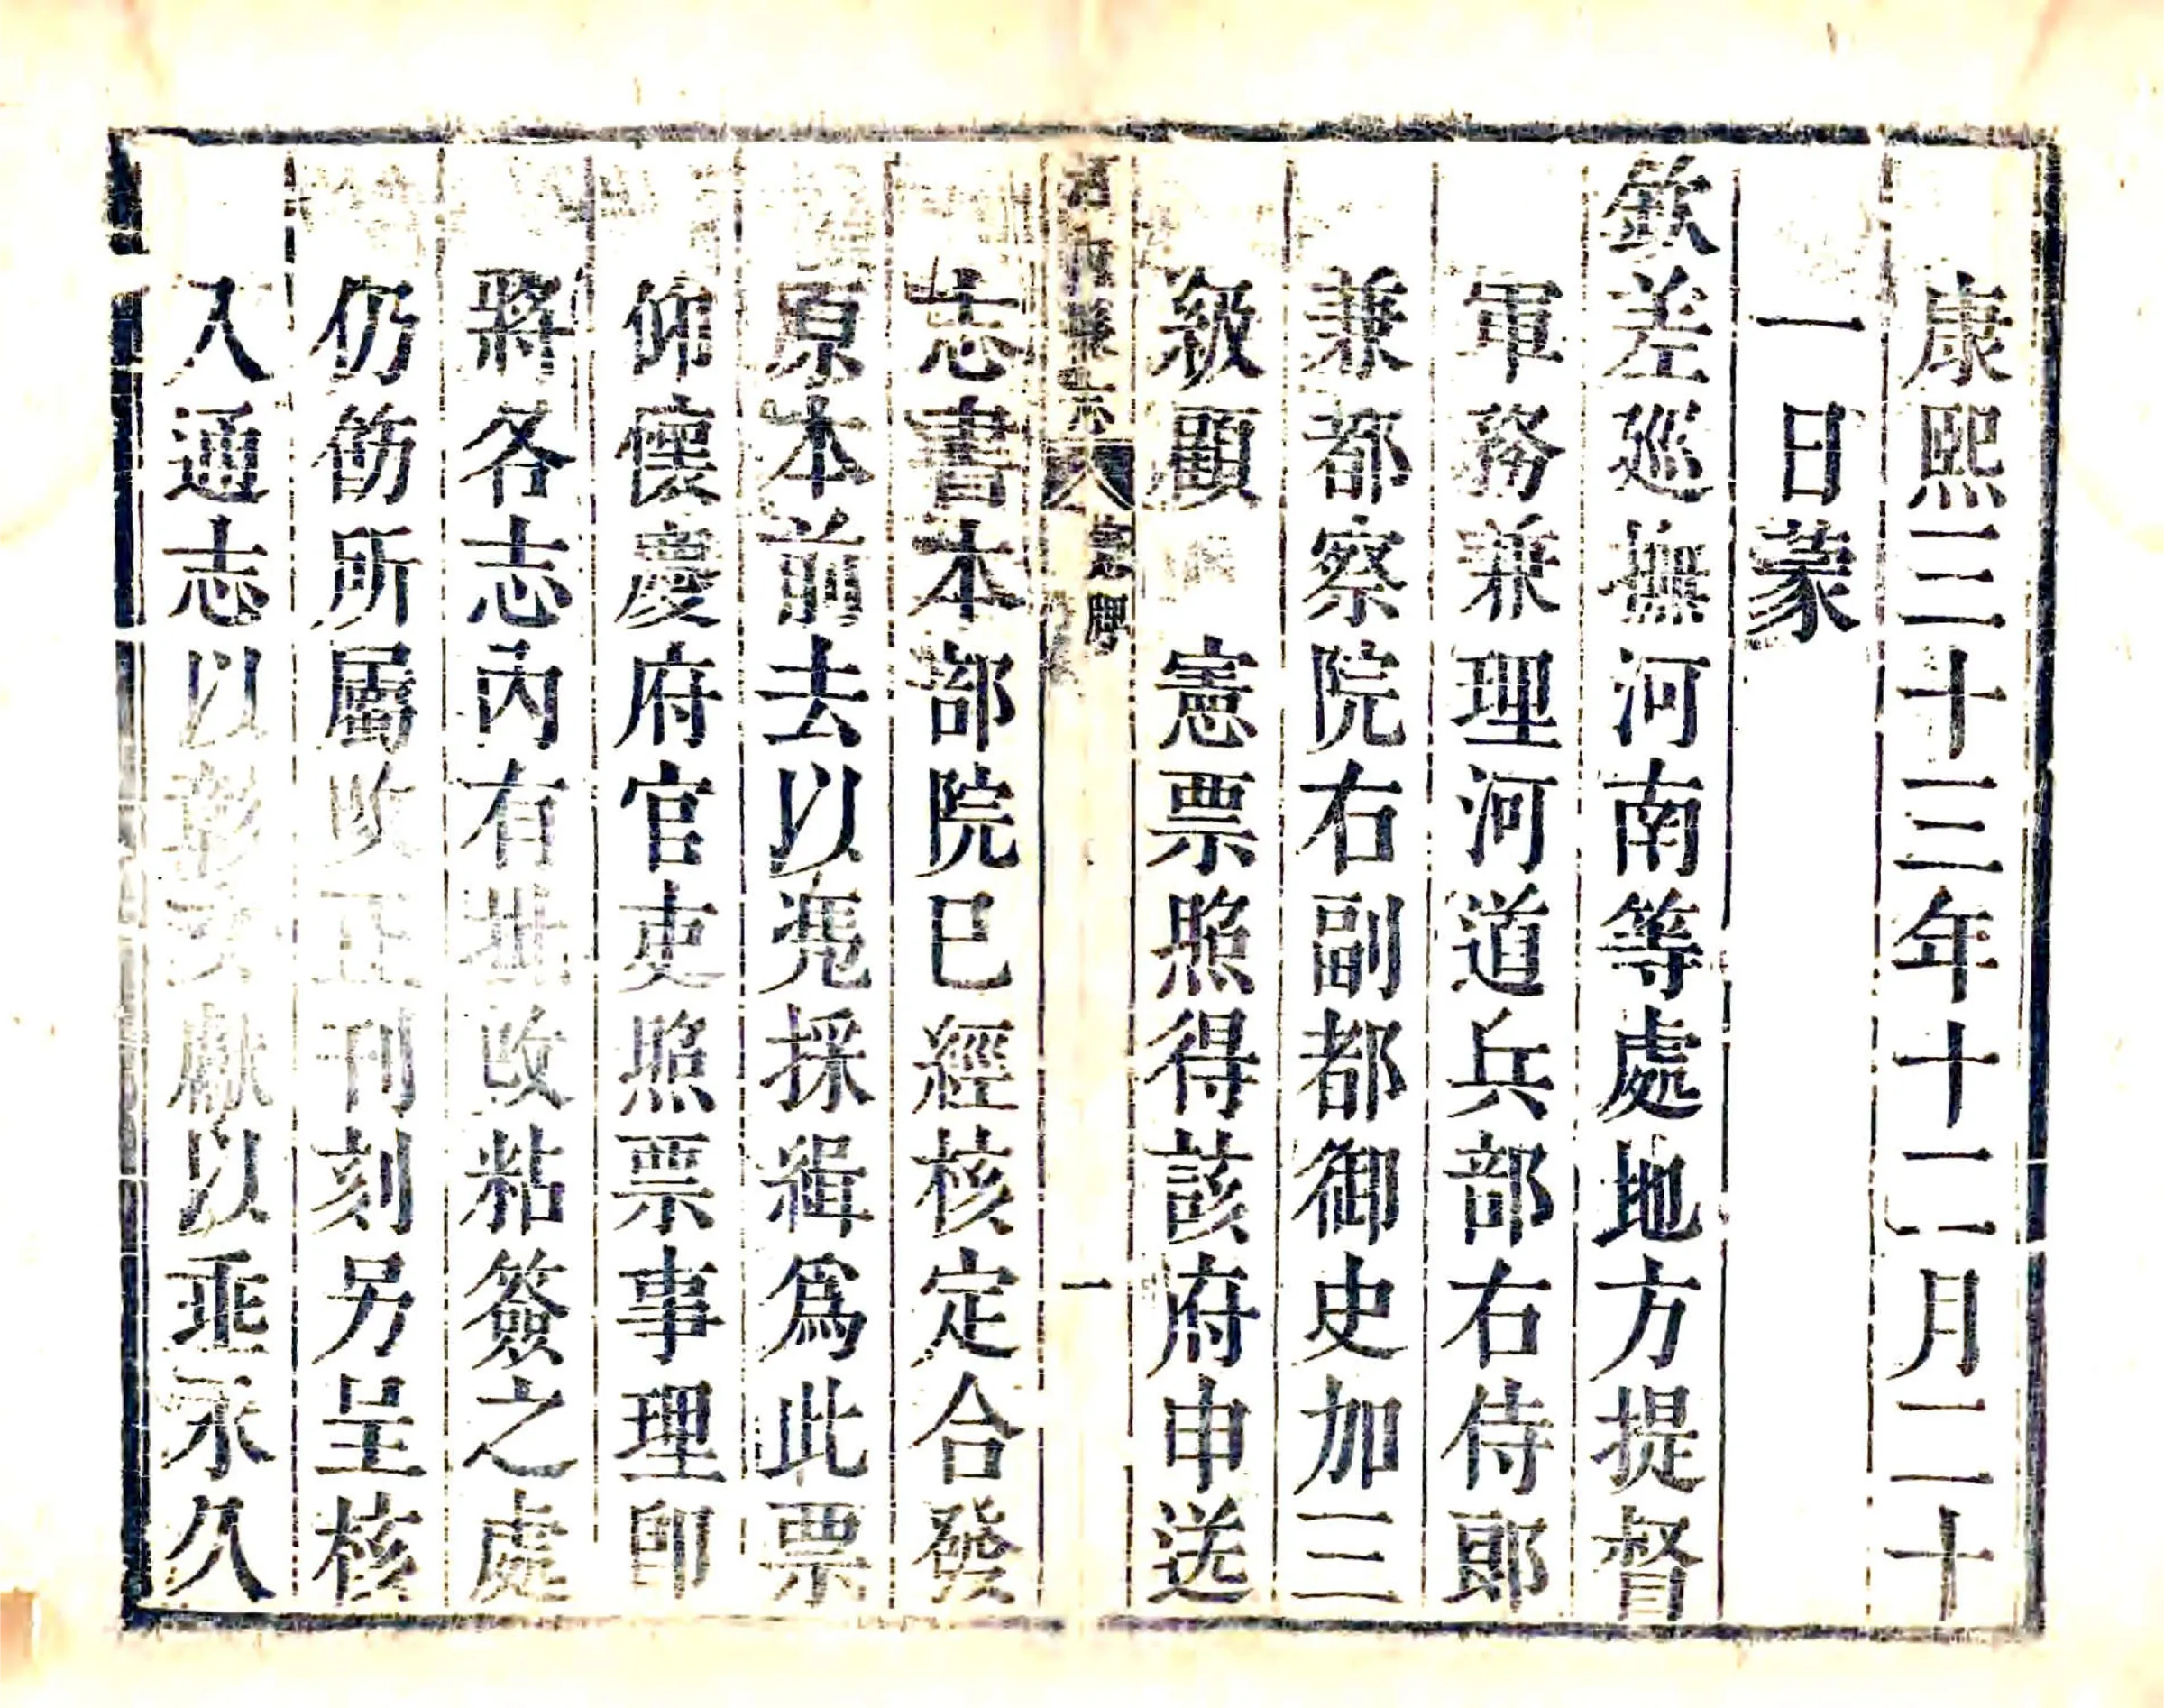 康熙三十三年十二月二十
一日蒙
欽差巡撫河南等處地方提督
軍務兼理河道兵部右侍郎
兼都察院右副都御史加三
級顧　憲票照得該府申送
河內縣志 憲牌 一
志書本部院已經核定合發
原本前去以凴採緝為此票
仰懷慶府官吏照票事理即
將各志內有批改粘簽之處
仍飭所屬改正刊刻另呈核
入通志以彰文獻以垂永久